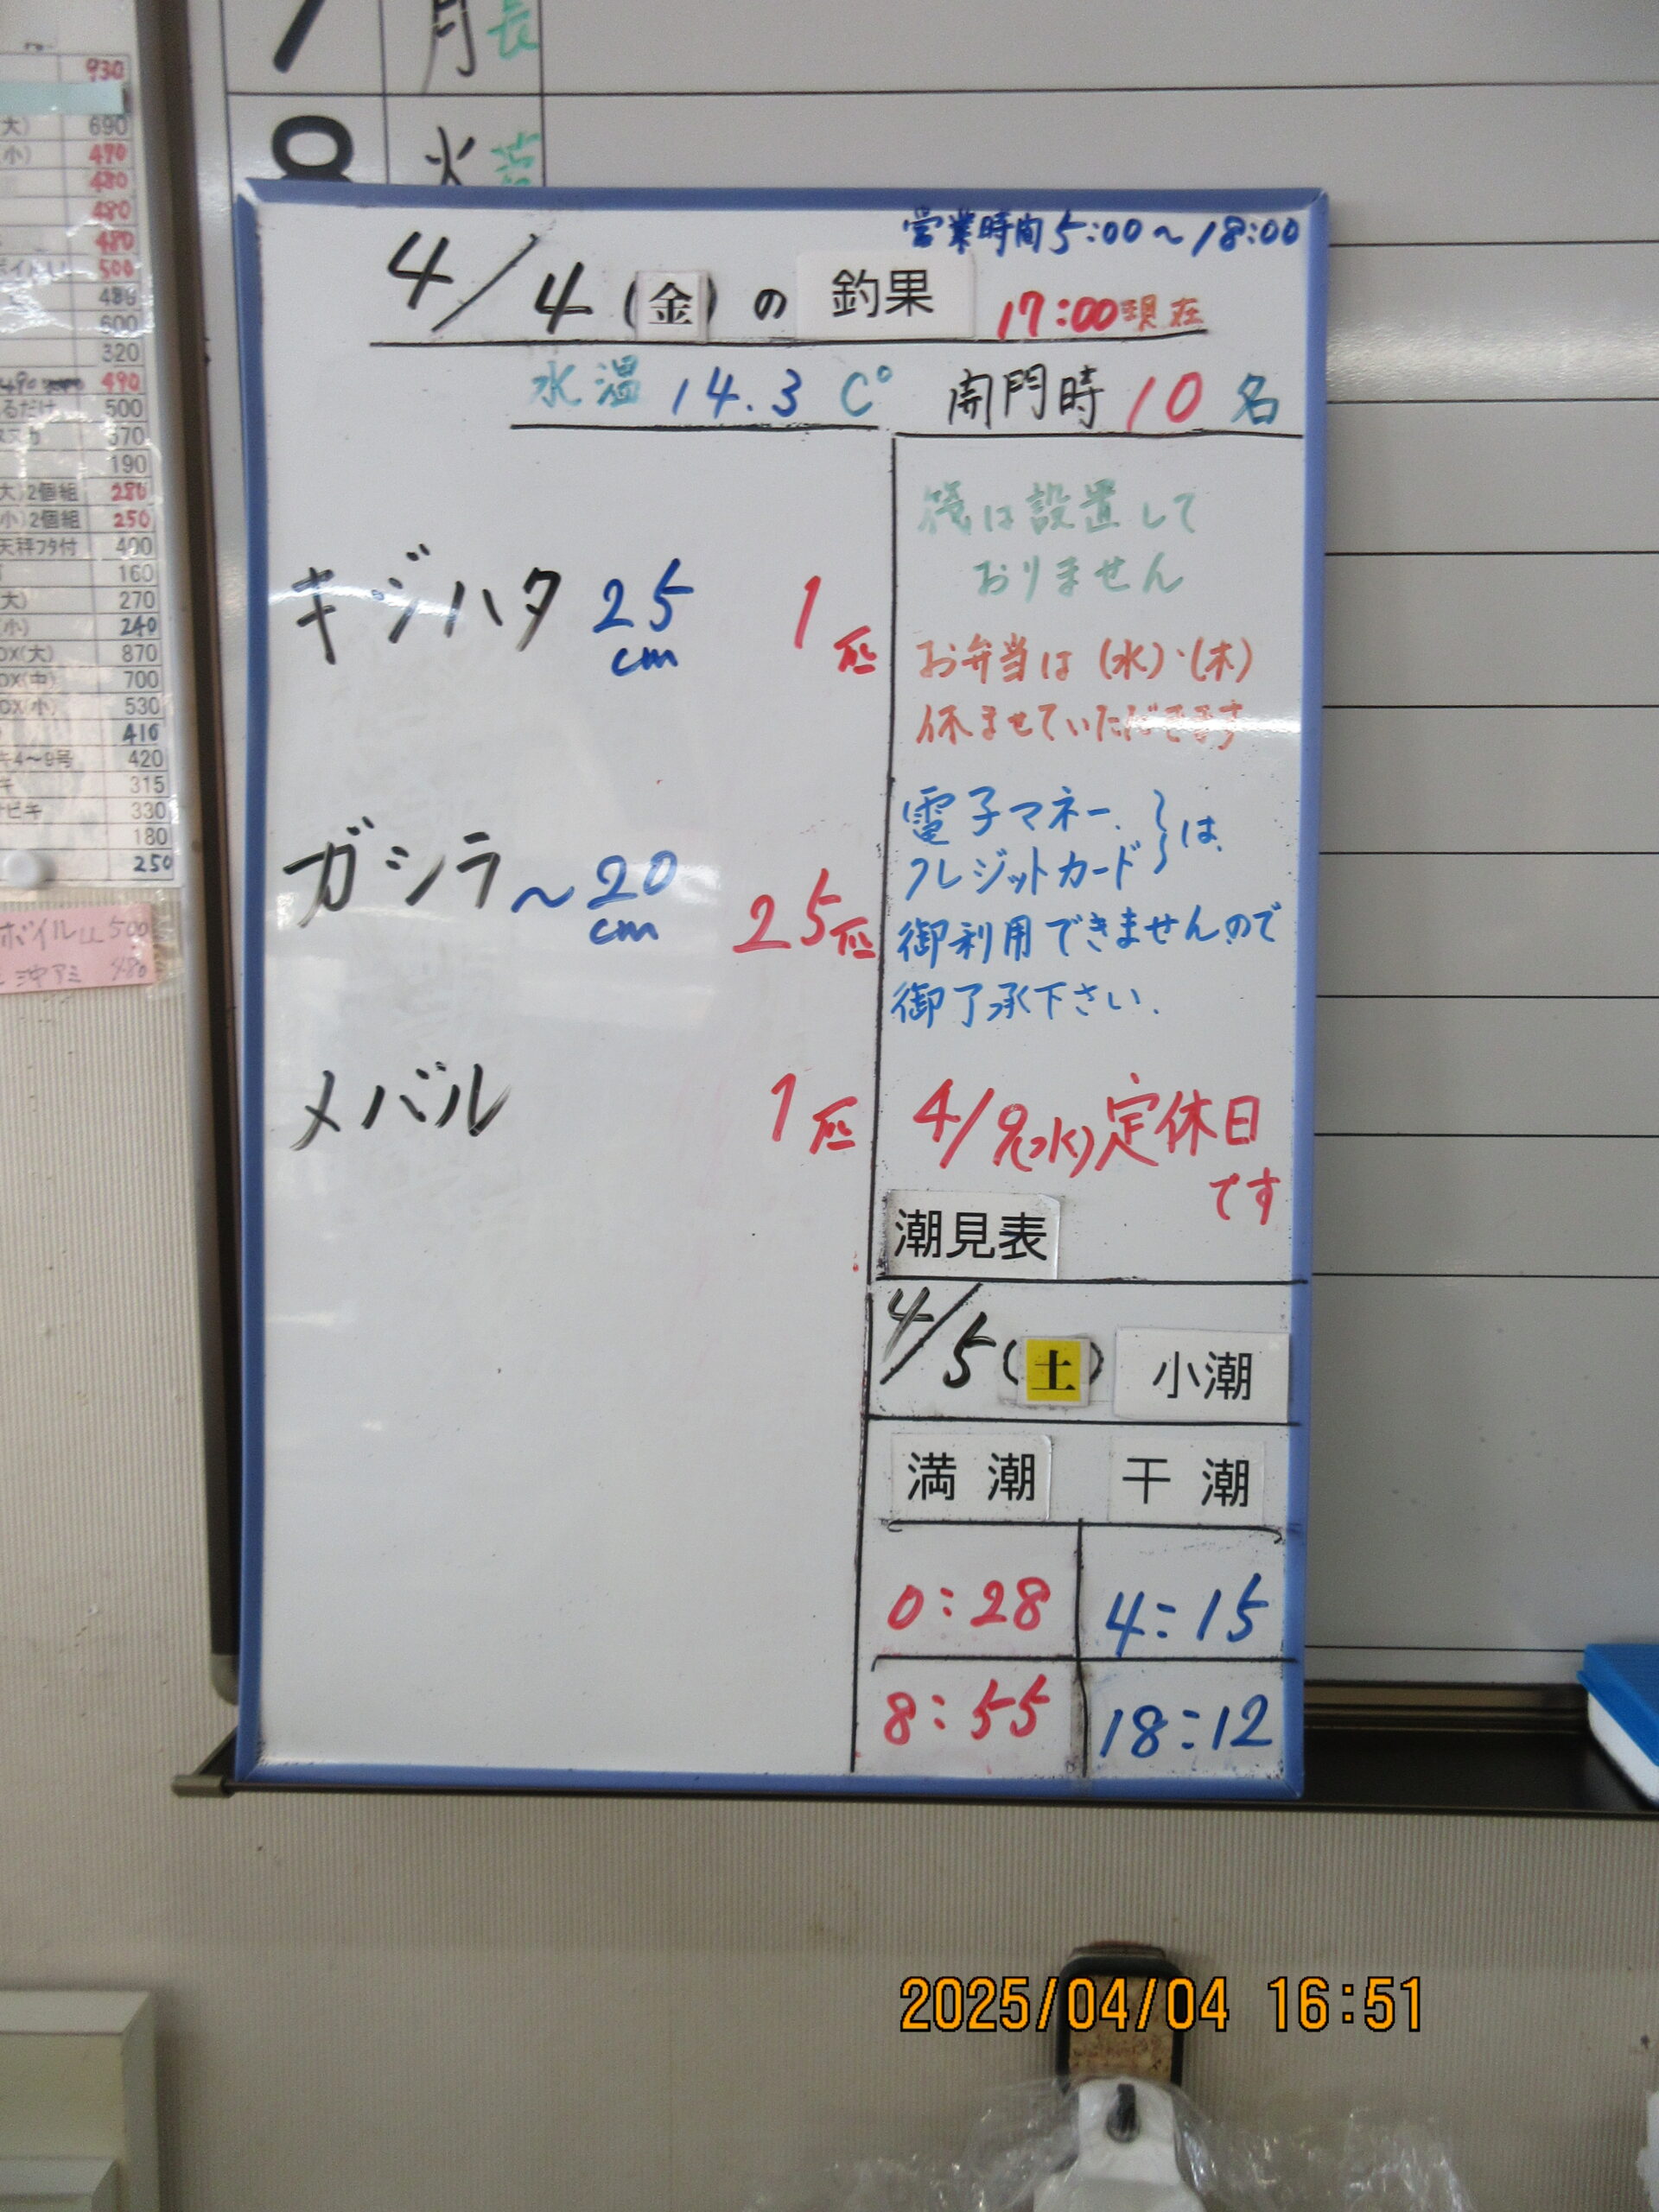 930
大) 690
小) 470
480
480
480
500
480
600
320
490
るだけ 500
370
190
大)2個組 280
小)2個組 250
天秤フタ付 400
160
大) 270
小) 240
OX(大) 870
OX(中) 700
OX(小) 530
410
キ4〜9号 420
キ 315
ナビキ 330
180
250
ボイルLL 500
沖アミ 480
7 月
8 火
営業時間 5:00〜18:00
4/4(金)の釣果 17:00現在
水温 14.3 C° 開門時 10名
キジハタ 25cm 1匹
ガシラ〜20cm 25匹
メバル 1匹
筏は設置して
おりません
お弁当は(水)・(木)
休ませていただきます
電子マネー、
クレジットカード}は、
御利用できませんので
御了承下さい.
4/9(水)定休日
です
潮見表
4/5(土) 小潮
満潮 干潮
0:28 4:15
8:55 18:12
2025/04/04 16:51